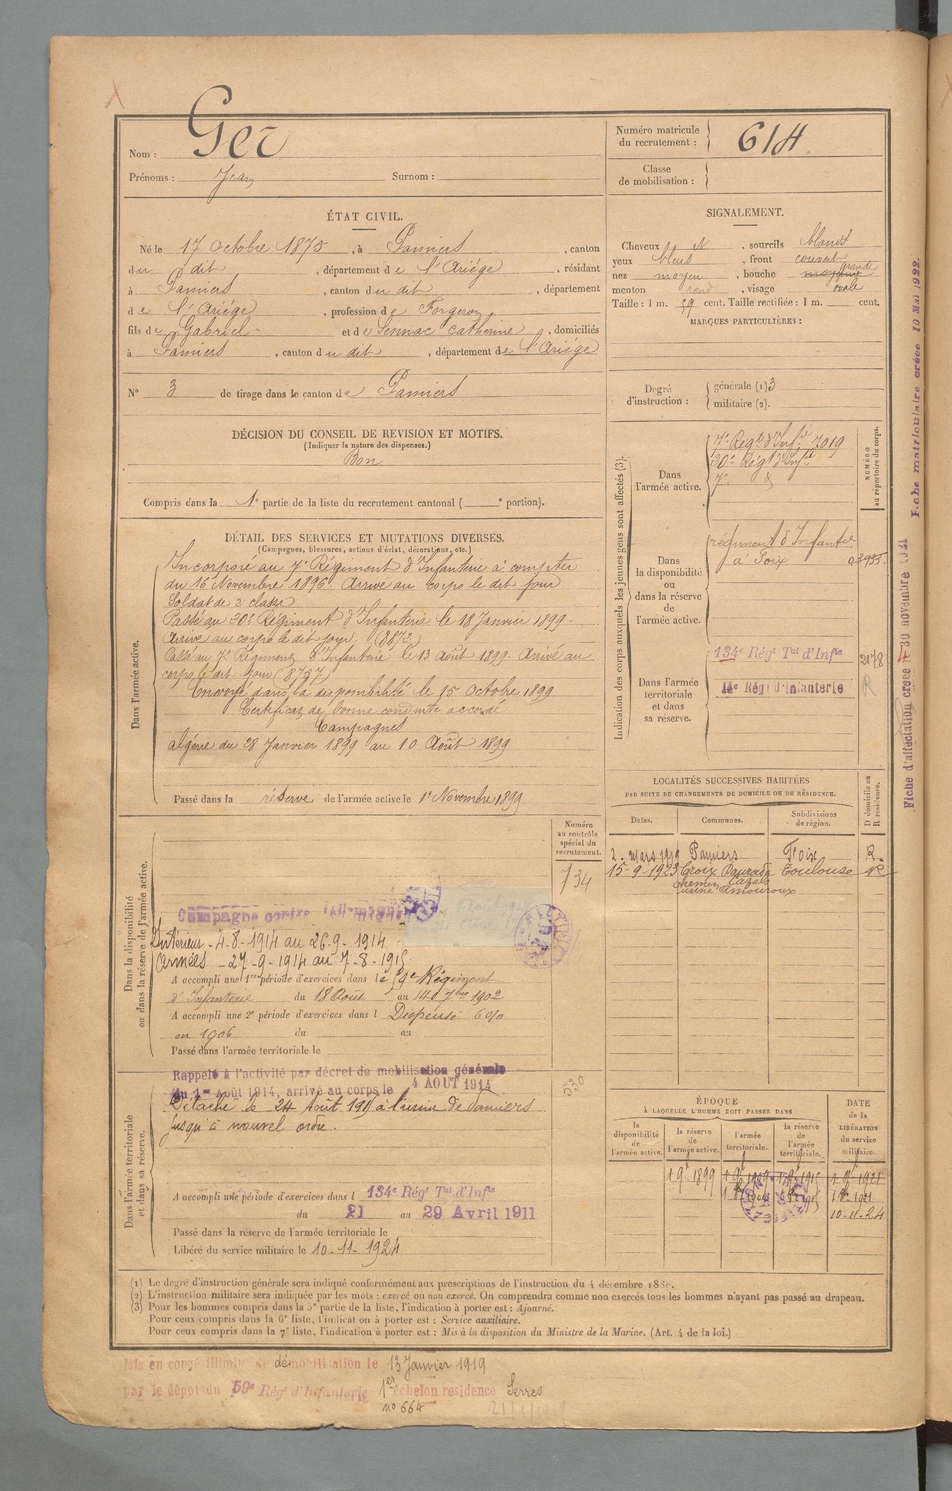 Nom : Ger
Prénoms : Jean Surnom :
Numéro matricule du recrutement : 614
Classe de mobilisation :
ÉTAT CIVIL.
Né le 17 Octobre 1875, à Pamiers, canton
du dit, département de l'Ariège, résidant
à Pamiers, canton du dit, département
de l'Ariège, profession de Forgeron
fils de Gabriel et de Sennac Catherine, domiciliés
à Pamiers, canton du dit, département de l'Ariège
N° 3 de tirage dans le canton de Pamiers
SIGNALEMENT.
Cheveux , sourcils blonds
yeux bleus, front couvert
nez moyen, bouche moyenne grande
menton rond, visage ovale
Taille : 1 m. 59 cent. Taille rectifiée : 1 m. cent.
MARQUES PARTICULIÈRES :
Degré d'instruction : générale (1) 3
militaire (2).
DÉCISION DU CONSEIL DE REVISION ET MOTIFS.
(Indiquer la nature des dispenses.)
Bon
Compris dans la 1e partie de la liste du recrutement cantonal ( e portion).
DÉTAIL DES SERVICES ET MUTATIONS DIVERSES.
(Campagnes, blessures, actions d'éclat, décorations, etc.)
Dans l'armée active.
Incorporé au 7e Régiment d'Infanterie à compter
du 16 Novembre 1896. Arrivé au corps le dit jour
Soldat de 2e classe
Passé au 20e Régiment d'Infanterie le 18 Janvier 1899.
Arrivé au corps le dit jour.
Passé au 7e Régiment d'Infanterie le 13 Août 1899. Arrivé au
corps le dit jour
Envoyé dans la disponibilité le 15 Octobre 1899
Certificat de bonne conduite accordé
Campagnes
Algérie du 28 Janvier 1899 au 10 Août 1899
Passé dans la réserve de l'armée active le 1er Novembre 1899
Indication des corps auxquels les jeunes gens sont affectés (3).
NUMÉRO au répertoire du corps.
Dans l'armée active.
7e Régt d'Infie 7019
Régt d'Infie
Dans la disponibilité ou dans la réserve de l'armée active.
régiment d'Infanterie
à Foix
Dans l'armée territoriale et dans sa réserve.
134e Régt Tal d'Infie 2078
14e Régt d'Infanterie R
LOCALITÉS SUCCESSIVES HABITÉES
PAR SUITE DE CHANGEMENTS DE DOMICILE OU DE RÉSIDENCE.
D domicile ou R résidence.
Dates. Communes. Subdivisions de région.
2. Mars 1919 Pamiers Foix R.
15-9-1923 Croix Daurade Toulouse R
chemin Cazals
usine Amouroux
Numéro au contrôle spécial du recrutement.
734
Dans la disponibilité ou dans la réserve de l'armée active.
Campagne contre l'Allemagne
Intérieur - 4-8-1914 au 26-9-1914
Armées - 27-9-1914 au 7-8-1915
A accompli une 1re période d'exercices dans le 59e Régiment
d'Infanterie du 18 Août au 14 7bre 1902
A accompli une 2e période d'exercices dans l Dispensé 6 %
en 1906 du au
Passé dans l'armée territoriale le
Dans l'armée territoriale et dans sa réserve.
Rappelé à l'activité par décret de mobilisation générale
du 1er Août 1914, arrivé au corps le 4 AOUT 1914
530
Détaché le 24 Août 191 à l'usine de Pamiers
jusqu'à nouvel ordre.
A accompli une période d'exercices dans l 134e Régt Tal d'Infie
du 21 au 29 Avril 1911
Passé dans la réserve de l'armée territoriale le
Libéré du service militaire le 10-11-1924
ÉPOQUE
À LAQUELLE L'HOMME DOIT PASSER DANS
DATE de la LIBÉRATION du service militaire.
la disponibilité de l'armée active. la réserve de l'armée active. l'armée territoriale. la réserve de l'armée territoriale.
10-11-24
(1) Le degré d'instruction générale sera indiqué conformément aux prescriptions de l'instruction du 4 décembre 188
(2) L'instruction militaire sera indiquée par les mots : exercé ou non exercé. On comprendra comme non exercés tous les hommes n'ayant pas passé au drapeau.
(3) Pour les hommes compris dans la 5e partie de la liste, l'indication à porter est : Ajourné.
Pour ceux compris dans la 6e liste, l'indication à porter est : Service auxiliaire.
Pour ceux compris dans la 7e liste, l'indication à porter est : Mis à la disposition du Ministre de la Marine. (Art. 4 de la loi.)
Mis en congé illimité de démobilisation le 13 Janvier 1919
par le dépôt du 59e Régt d'Infanterie 1er échelon résidence Serres
n° 664
Fiche matriculaire créée 10 Mai 1922.
Fiche d'affectation créée 30 novembre